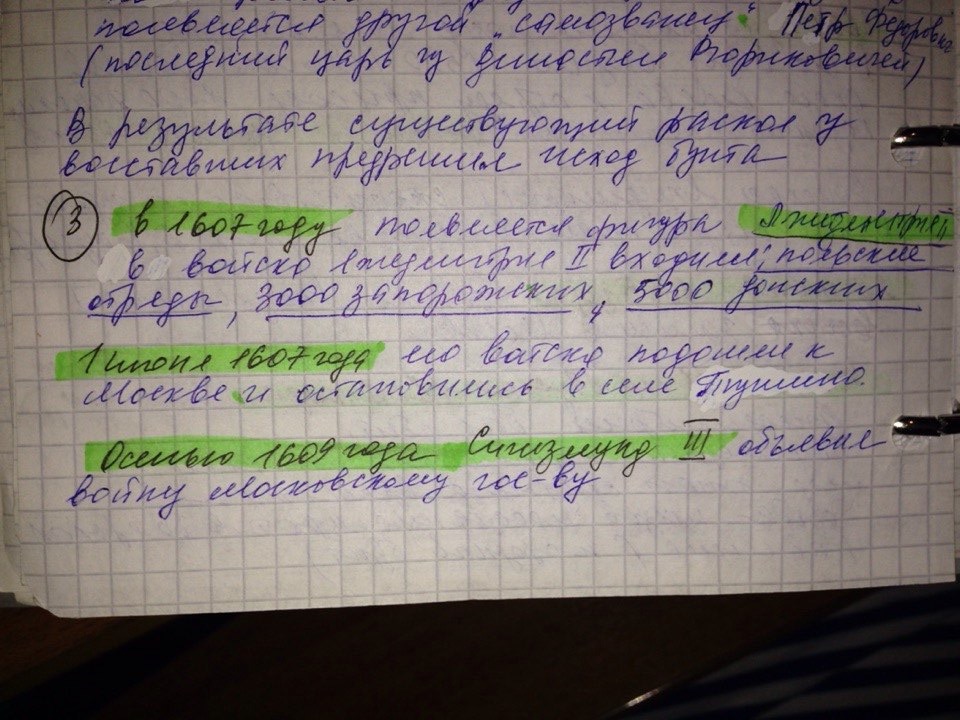 появляется другой "самозванец" Петр Федорович
(последний царь из династии Рюриковичей)
В результате существующий раскол у
восставших предрешил исход бунта
3 в 1607 году появляется фигура Лжедмитрия
в войско Лжедмитрия II входили: польские
отряды, 3000 запорожских, 5000 донских
1 июня 1607 года его войско подошли к
Москве и остановились в селе Тушино.
Осенью 1609 года Сигизмунд III объявил
войну Московскому гос-ву